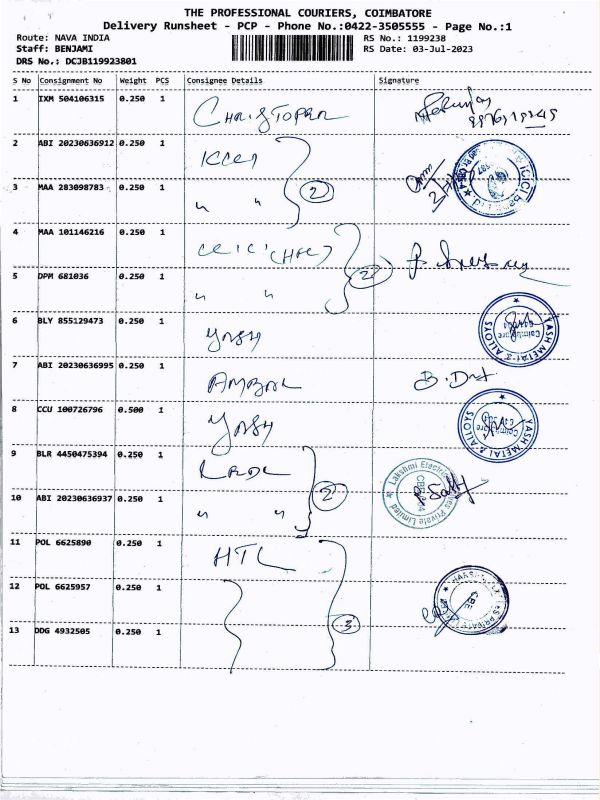 THE PROFESSIONAL COURIERS, COIMBATORE
Delivery Runsheet - PCP - Phone No.:0422-3505555 - Page No.:1
Route: NAVA INDIA RS No.: 1199238
Staff: BENJAMI RS Date: 03-Jul-2023
DRS No.: DCJB119923801
S No Consignment No Weight PCS Consignee Details Signature
1 IXM 504106315 0.250 1
2 ABI 20230636912 0.250 1
3 MAA 283098783 0.250 1 " " 2
4 MAA 101146216 0.250 1
5 DPM 681036 0.250 1 " " 2
6 BLY 855129473 0.250 1 YASH
YASH METAL & ALLOYS
Coimbatore
7 ABI 20230636995 0.250 1 AMBAL
8 CCU 100726796 0.500 1 YASH
YASH METAL & ALLOYS
9 BLR 4450475394 0.250 1
Lakshmi Electrical Drives Private Limited
10 ABI 20230636937 0.250 1 " " 2
11 POL 6625890 0.250 1 HTL
12 POL 6625957 0.250 1
13 DDG 4932505 0.250 1 3